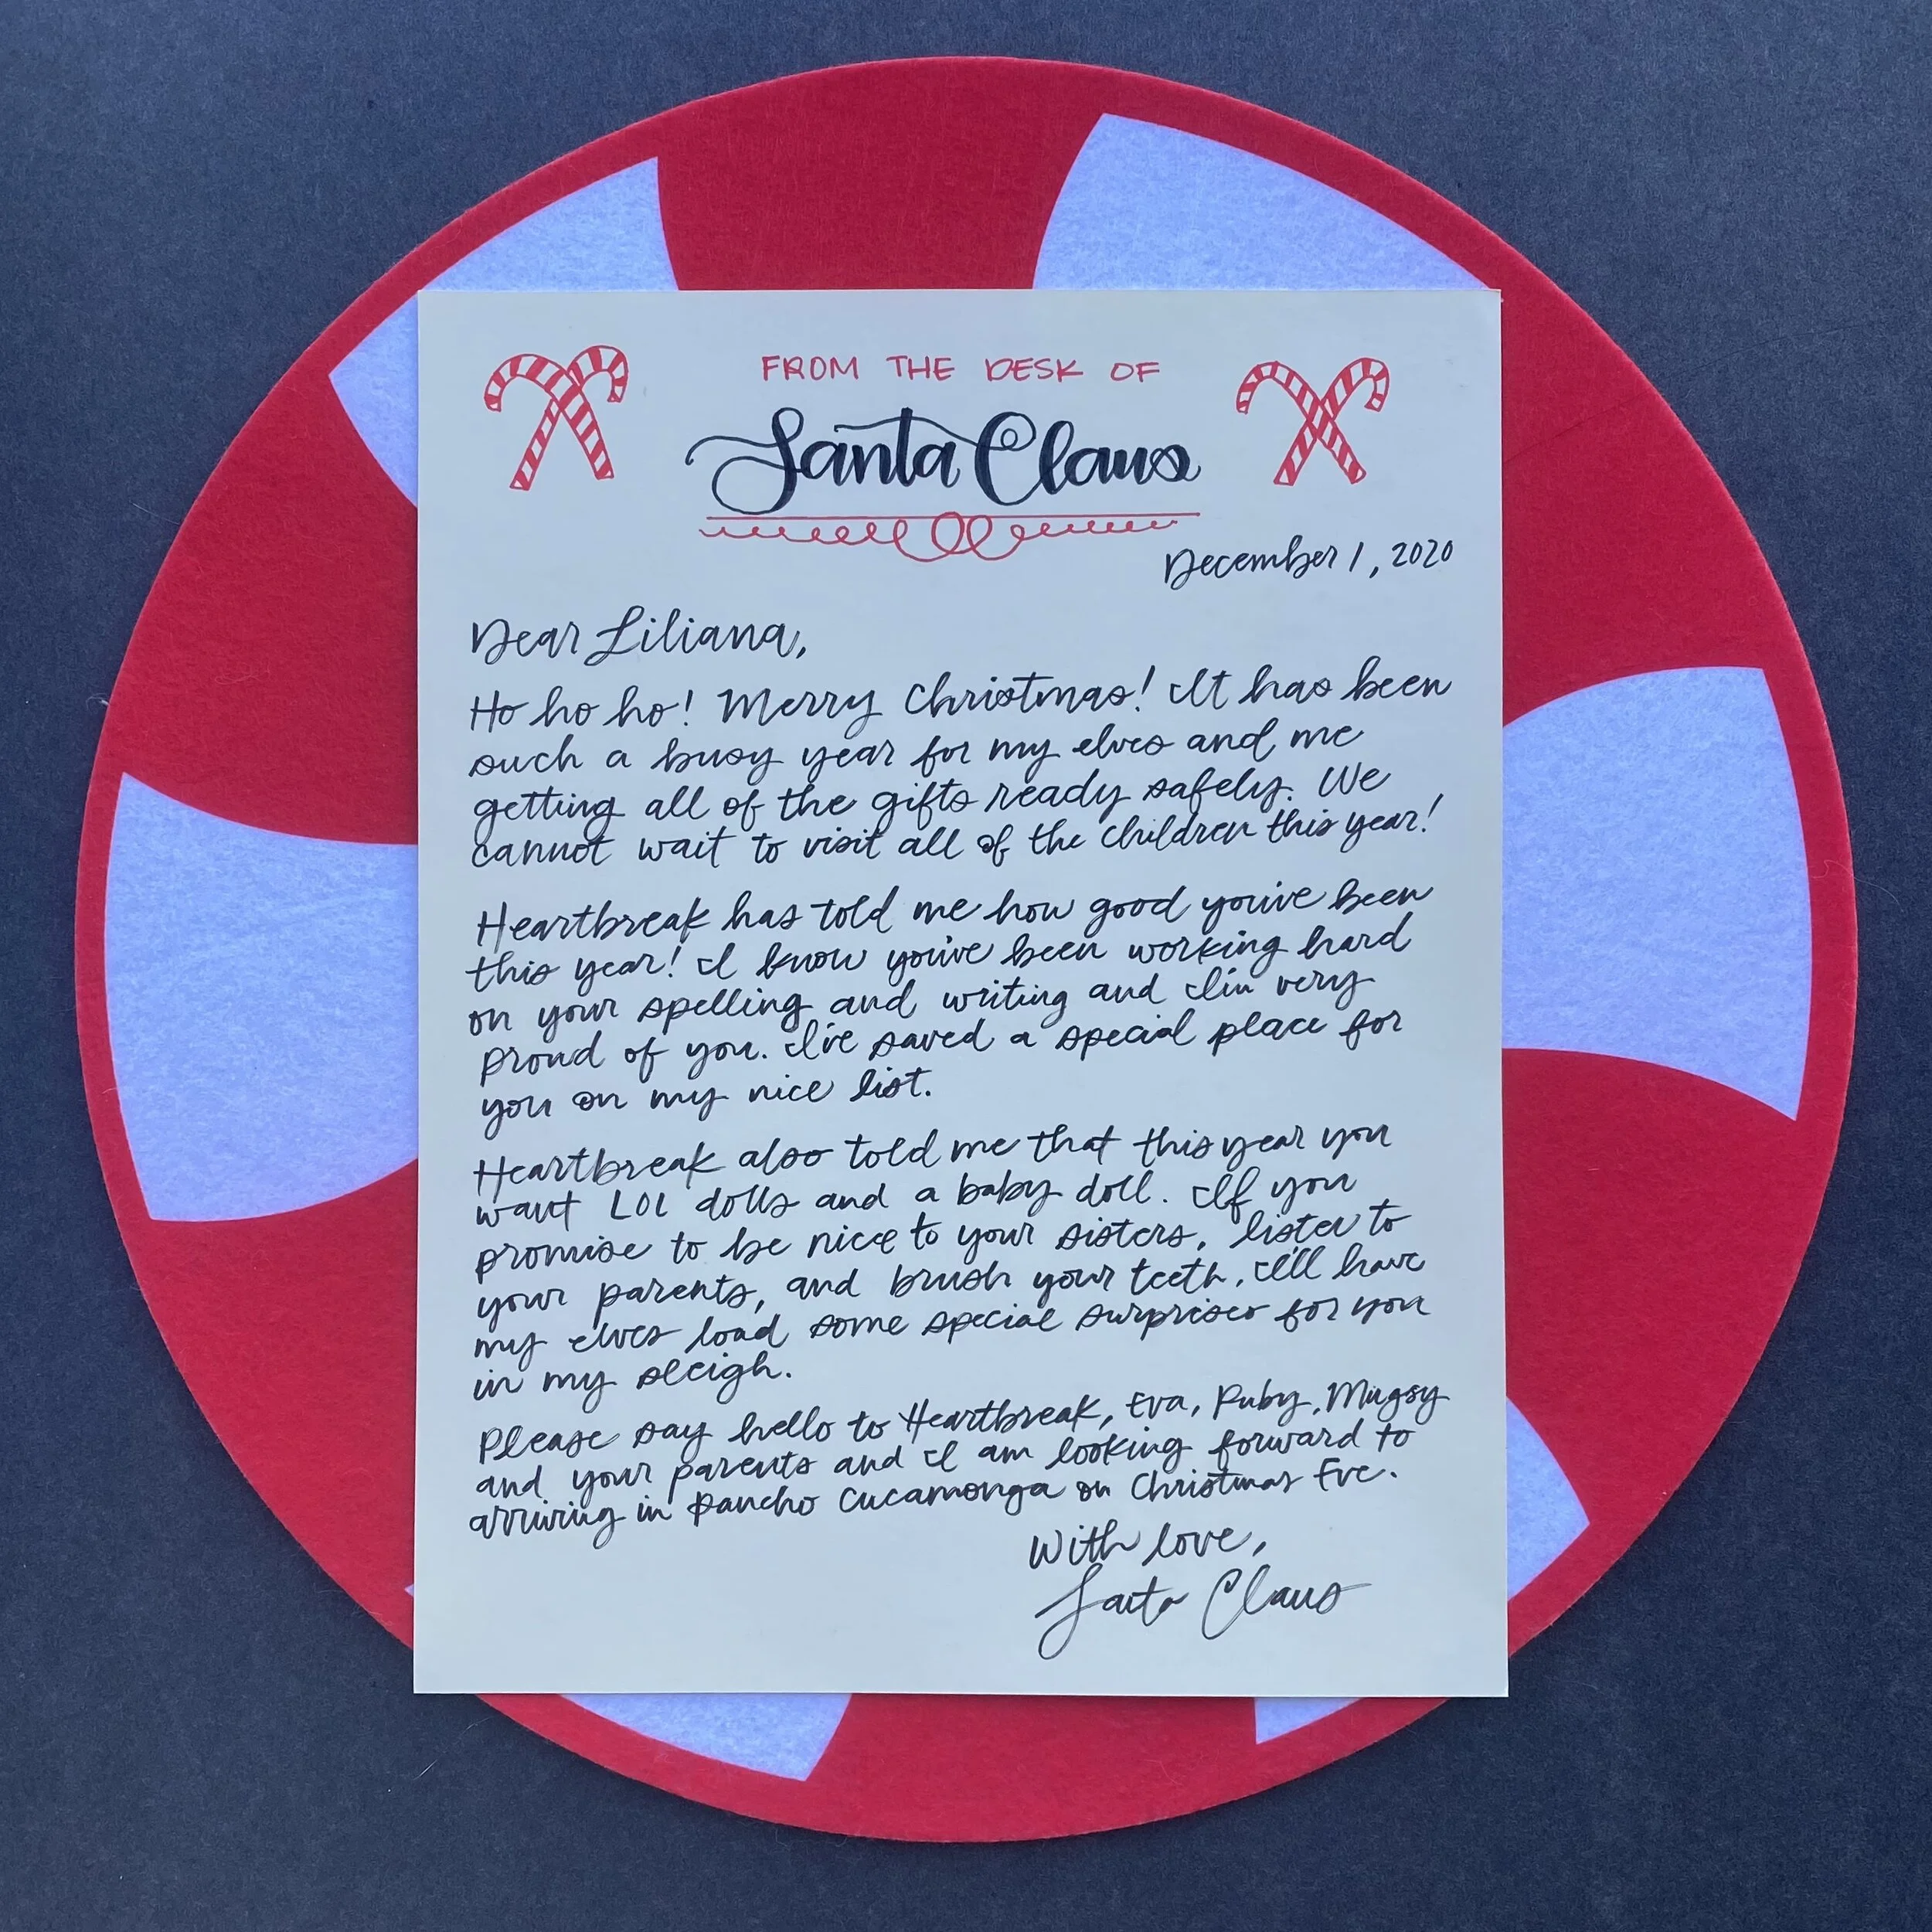 FROM THE DESK OF
Santa Claus
December 1, 2020
Dear Liliana,
Ho ho ho! Merry Christmas! It has been
such a busy year for my elves and me
getting all of the gifts ready safely. We
cannot wait to visit all of the children this year!
Heartbreak has told me how good you've been
this year! I know you've been working hard
on your spelling and writing and I'm very
proud of you. I've saved a special place for
you on my nice list.
Heartbreak also told me that this year you
want LOL dolls and a baby doll. If you
promise to be nice to your sisters, listen to
your parents, and brush your teeth, I'll have
my elves load some special surprises for you
in my sleigh.
Please say hello to Heartbreak, Eva, Ruby, Mugsy
and your parents and I am looking forward to
arriving in Rancho Cucamonga on Christmas Eve.
With love,
Santa Claus